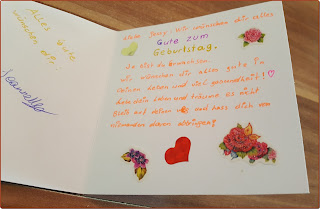 Alles Gute
wünschen dir
Liebe Jenny, Wir wünschen dir alles
Gute zum
Geburtstag.
Jetzt bist du Erwachsen.
wir wünschen dir alles gute in
deinem Leben und viel gesundheit!
Lebe dein Leben und träume es nicht
Bleib auf deinem weg und lass dich von
niemanden davon abbringen!